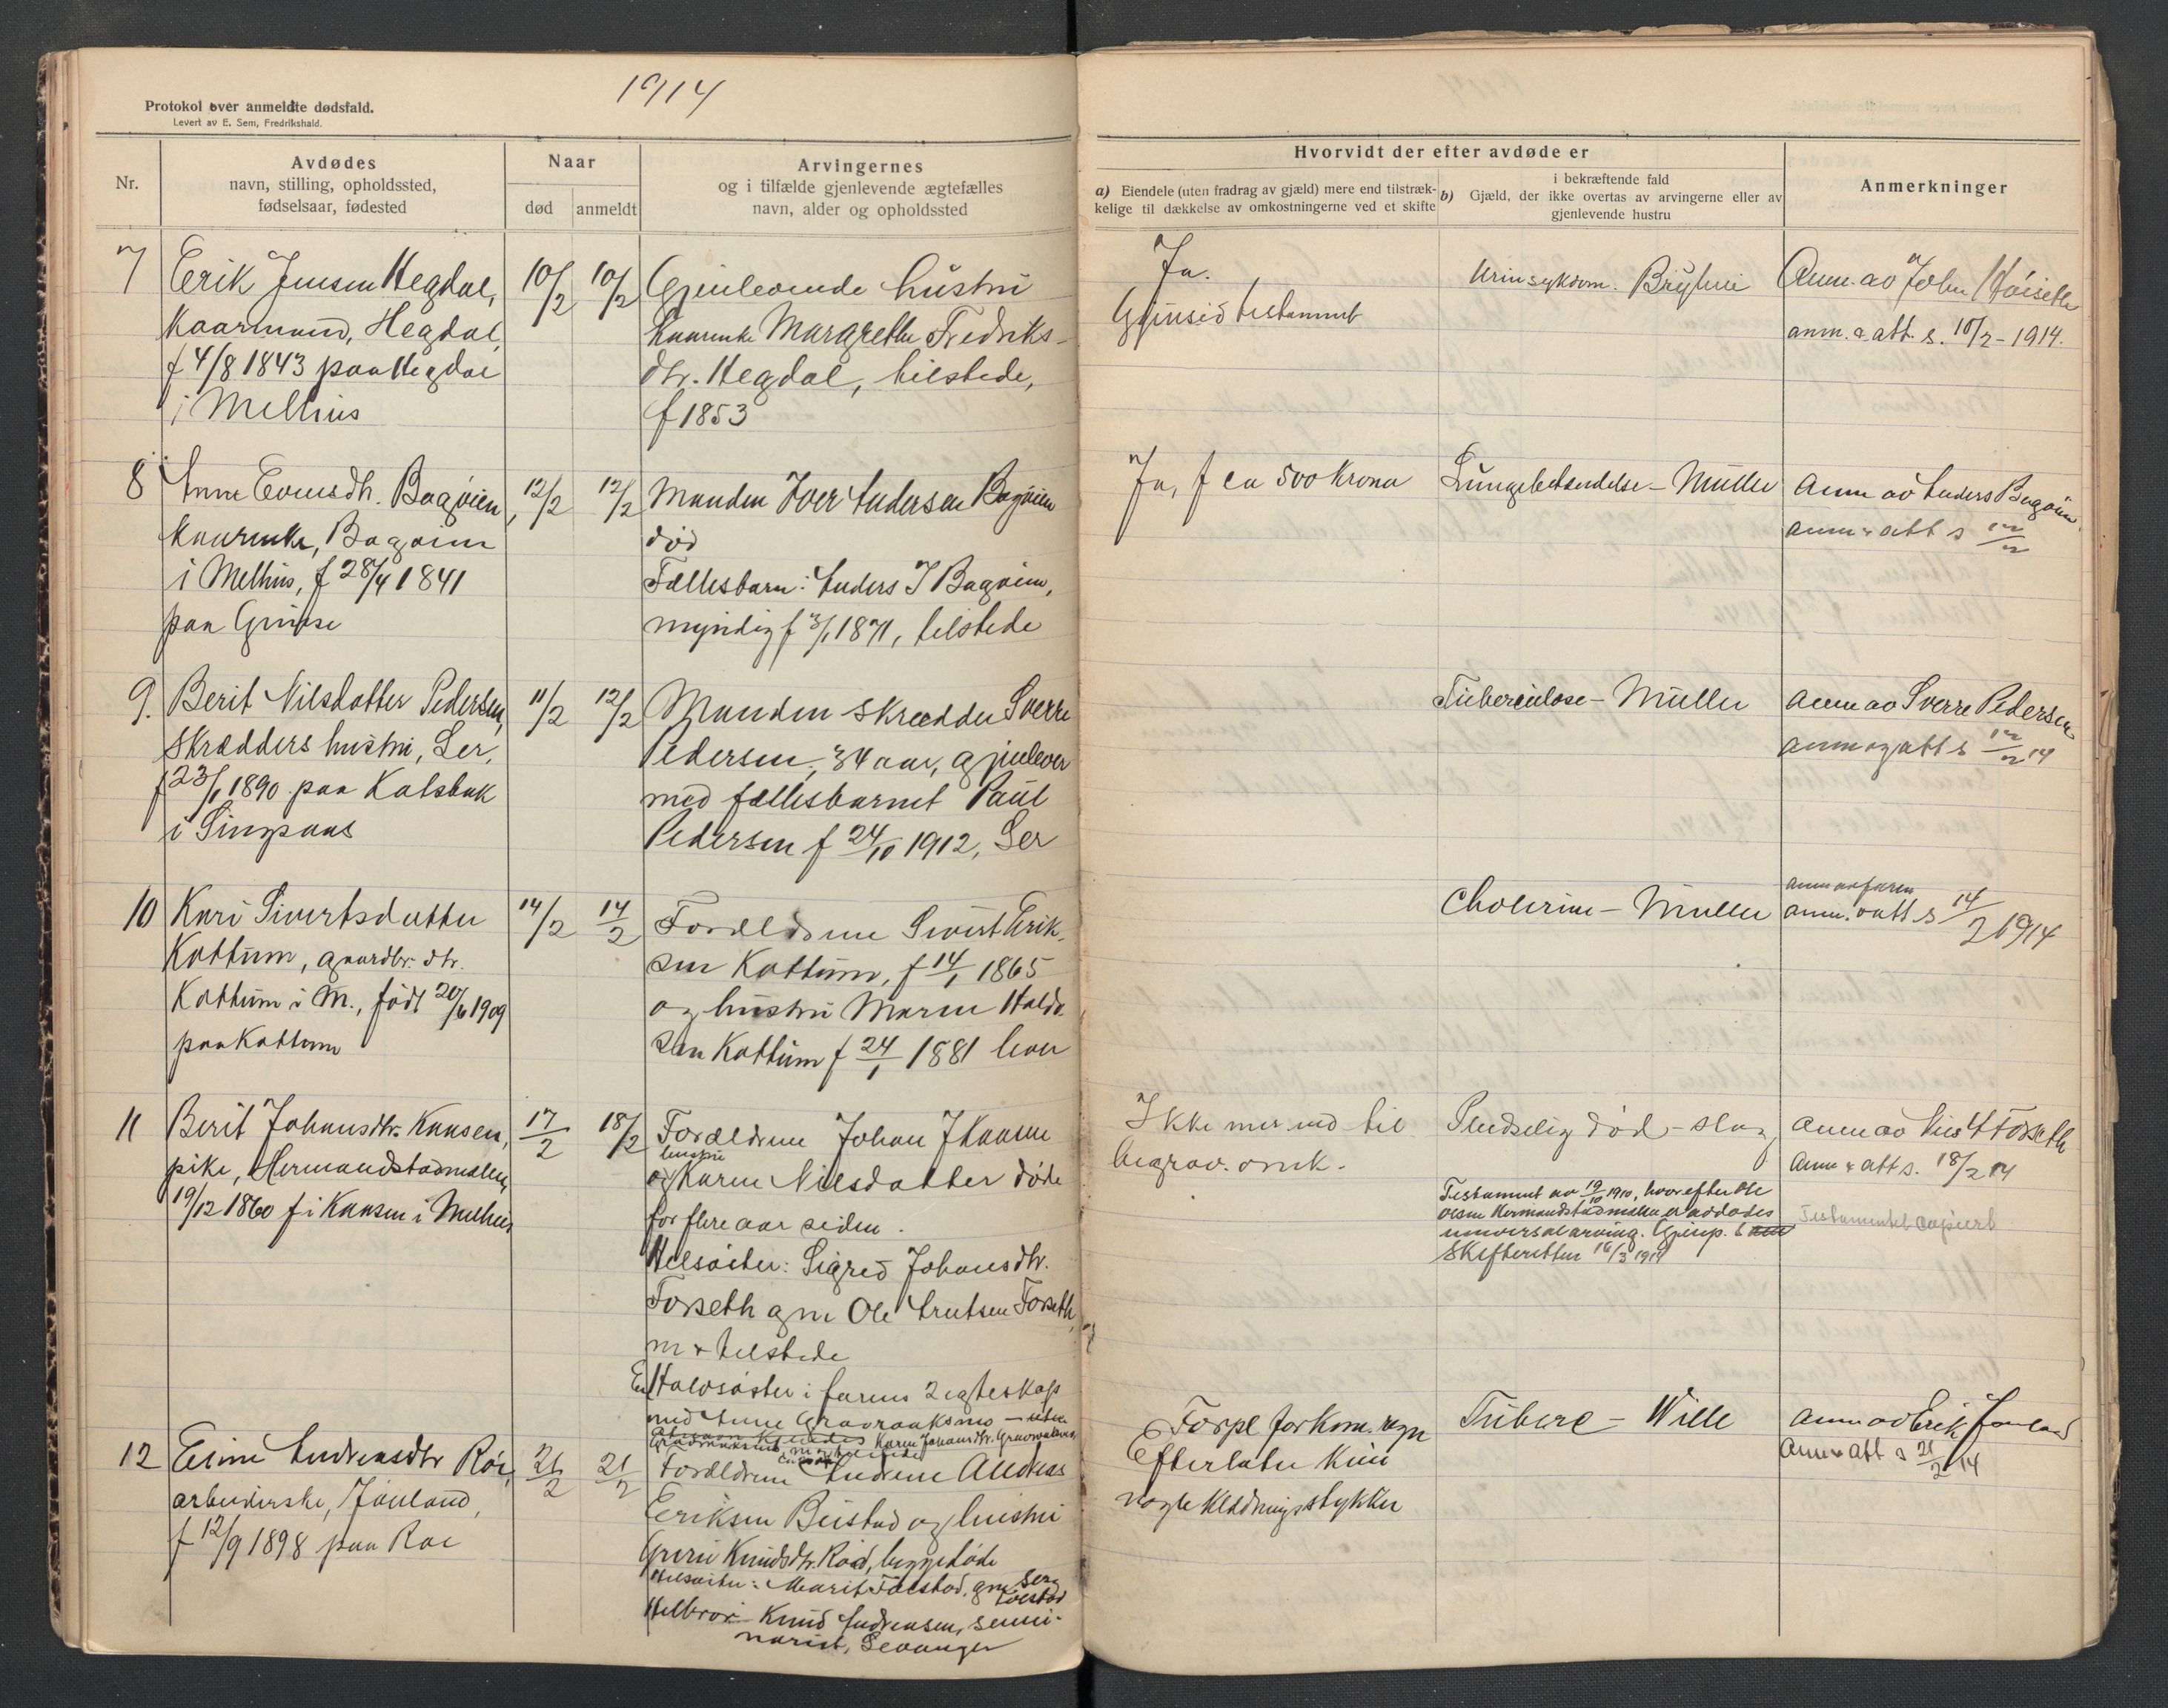 Protokol over anmeldte dødsfald.
Levert av E. Sem, Fredrikshald.
1914
Nr.
Avdødes
navn, stilling, opholdssted,
fødselsaar, fødested
Naar
død
anmeldt
Arvingernes
og i tilfælde gjenlevende ægtefælles
navn, alder og opholdssted
Hvorvidt der efter avdøde er
a) Eiendele (uten fradrag av gjæld) mere end tilstræk-
kelige til dækkelse av omkostningerne ved et skifte
i bekræftende fald
b) Gjæld, der ikke overtas av arvingerne eller av
gjenlevende hustru
Anmerkninger
7
Erik Jensen Hegdal,
Kaarmand, Hegdal,
f 4/8 1843 paa Hegdal
i Melhus
10/2
10/2
Gjenlevende hustru
Kaarenke Margrethe Fredriks-
dtr. Hegdal, tilstede,
f 1853
Ja.
Gjensid testament
Urinsykdom.
Anm. av John
anm. & att. s. 10/2 - 1914.
8
Anne Evensdtr. Bagøien,
Kaarenke, Bagøien
i Melhus, f 28/4 1841
paa
12/2
12/2
Manden Iver Andersen Bagøien
død
Fællesbarn: Anders I Bagøien,
myndig f 3/1 1871, tilstede
Ja, f ca 500 Kroner
Lungebetændelse - Müller
Anm av Anders Bagøien
anm & att s 12/2
9.
Berit Nilsdatter Pedersen,
Skrædders hustru, Ler,
f 23/1 1890 paa Kalsbak
i Singsaas
11/2
12/2
Manden skrædder Sverre
Pedersen, 34 aar, gjenlever
med fællesbarnet Paul
Pedersen f 24/10 1912, Ler
Tuberculose - Müller
Anm av Sverre Pedersen
anm og att s 12/2 14
10
Kari Sivertsdatter
Kattum, gaardbr. dtr.
Kattum i M., født 20/6 1909
paa Kattum
14/2
14/2
Forældrene Sivert Erik-
sen Kattum, f 14/1 1865
og hustru Maren Halds.
Kattum f 24/1 1881 lever
Cholerine - Müller
anm av faren
anm. & att s 14/2 1914
11
Berit Johansdtr. Kaasen,
pike, Hermandstadmælen,
19/12 1860 f i Kaasen i Melhus
17/2
18/2
Forældrene Johan J Kaasen
hustru
og Karen Nilsdatter døde
for flere aar siden.
Helsøster: Sigrid Johansdtr.
Forseth gm Ole Arntsen Forseth,
m & tilstede
En Halvsøster i farens 2 egteskap
med Anne Gravraaksmo - uten
Karen Johansdtr.
Ikke mer end til
begrav. omk.
Pludselig død - slag
Testament av 19/10 1910, hvorefter Ole
Olsen Hermandstadmælen er avdødes
universalarving. Gjenp. t
Skifteretten 16/3 1914
Anm av Forseth
Anm & att s. 18/2 14
Testamentet copiert
12
Andreasdtr Røe,
arbeiderske, Jønland,
f 12/9 1898 paa Roe
21/2
21/2
Forældrene Andreas
Eriksen Bustad og hustru
Guru Knudsdtr. begge døde
Helsøster: Marit
Helbror Knud Andreasen, semi-
narist, Levanger
Forpl for Kom. regn
Efterlater Kun
nogle Klædningsstykker
Tuberc - Wille
Anm av Erik Jønland
Anm & att s 21/2 14